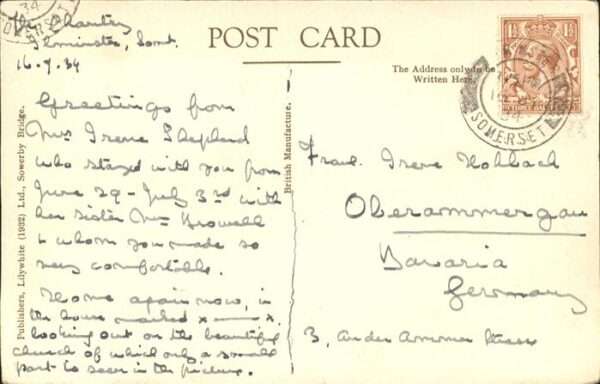 The Chantry
Ilminster, Somt.
16.7.34
POST CARD
The Address only to be
Written Here.
SOMERSET
34
Greetings from
Mrs Irene Shepherd
who stayed with you from
June 29 - July 3rd with
her sister Mrs
& whom you made so
very comfortable.
Home again now, in
the house marked x
looking out on the beautiful
church of which only a small
part is seen in the picture.
British Manufacture.
Publishers, Lilywhite (1932) Ltd., Sowerby Bridge.
Frau. Irene Hohbach
Oberammergau
Bavaria
Germany
3, Ander Ammer Strasse